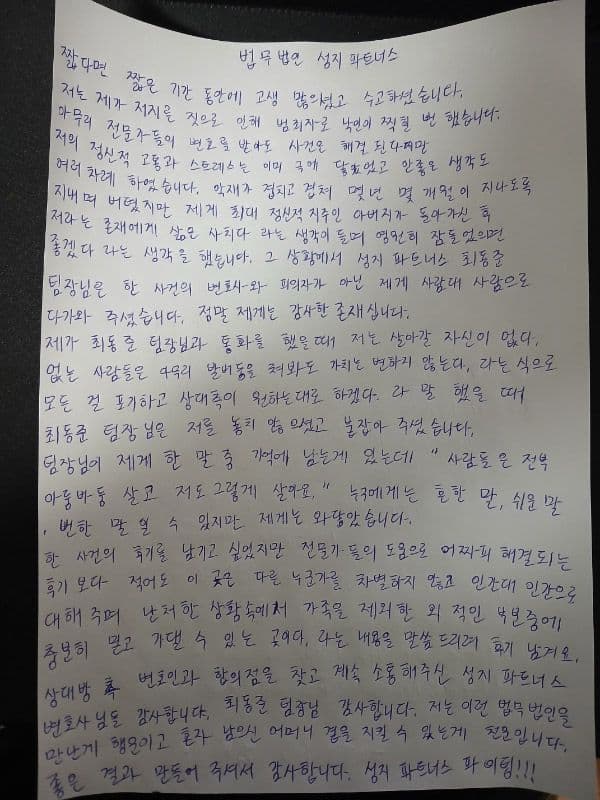 법무법인 성지파트너스
짧다면 짧은 기간 동안에 고생 많으셨고 수고하셨습니다.
저는 제가 저지른 짓으로 인해 범죄자로 낙인이 찍힐 뻔 했습니다.
아무리 전문가들의 변호를 받아도 사건은 해결 된다지만
저의 정신적 고통과 스트레스는 이미 극에 달했었고 안좋은 생각도
여러 차례 하였습니다. 악재가 겹치고 겹쳐 몇년 몇 개월이 지나도록
지내며 버텼지만 제게 최대 정신적 지주인 아버지가 돌아가신 후
저라는 존재에게 삶은 사치다 라는 생각이 들며 영원히 잠들었으면
좋겠다 라는 생각을 했습니다. 그 상황에서 성지 파트너스 최동준
팀장님은 한 사건의 변호사와 피의자가 아닌 제게 사람대 사람으로
다가와 주셨습니다. 정말 제게는 감사한 존재십니다.
제가 최동준 팀장님과 통화를 했을때 저는 살아갈 자신이 없다,
없는 사람들은 아무리 발버둥을 쳐봐도 가치는 변하지 않는다, 라는 식으로
모든 걸 포기하고 상대측이 원하는대로 하겠다. 라 말 했을 때
최동준 팀장님은 저를 놓치 않으셨고 붙잡아 주셨습니다,
팀장님이 제게 한 말 중 기억에 남는게 있는데 " 사람들은 전부
아둥바둥 살고 저도 그렇게 살아요." 누구에게는 흔한 말, 쉬운 말
, 뻔한 말 일 수 있지만 제게는 와닿았습니다.
한 사건의 후기를 남기고 싶었지만 전문가들의 도움으로 어찌피 해결되는
후기 보다 적어도 이 곳은 다른 누군가를 차별하지 않고 인간대 인간으로
대해 주며 난처한 상황속에서 가족을 제외한 외 적인 부분중에
충분히 믿고 기댈 수 있는 곳이다, 라는 내용을 말씀드리려 후기 남겨요.
상대방 변호인과 합의점을 찾고 계속 소통해주신 성지 파트너스
변호사님들 감사합니다, 최동준 팀장님 감사합니다. 저는 이런 법무법인을
만난게 행운이고 혼자 남으신 어머니 곁을 지킬 수 있는게 천운입니다.
좋은 결과 만들어 주셔서 감사합니다. 성지 파트너스 파이팅!!!